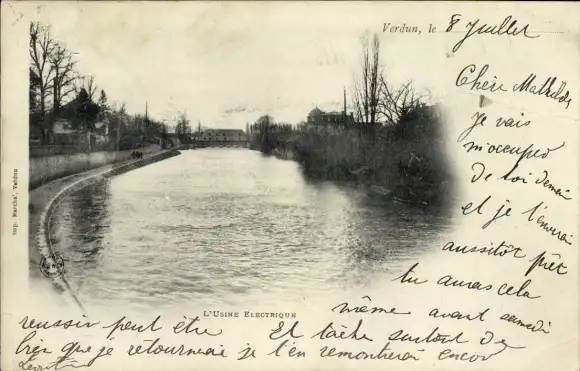 Verdun, le 8 Juillet
Chère Mathilde
Je vais
m'occuper
de toi demain
et je t'enverrai
aussitôt prêt
tu auras cela
même avant samedi
L'USINE ELECTRIQUE
Et tâche surtout de
réussir peut être
bien que je retournerai je t'en remontrerai encor
Imp. Marchal, Verdun